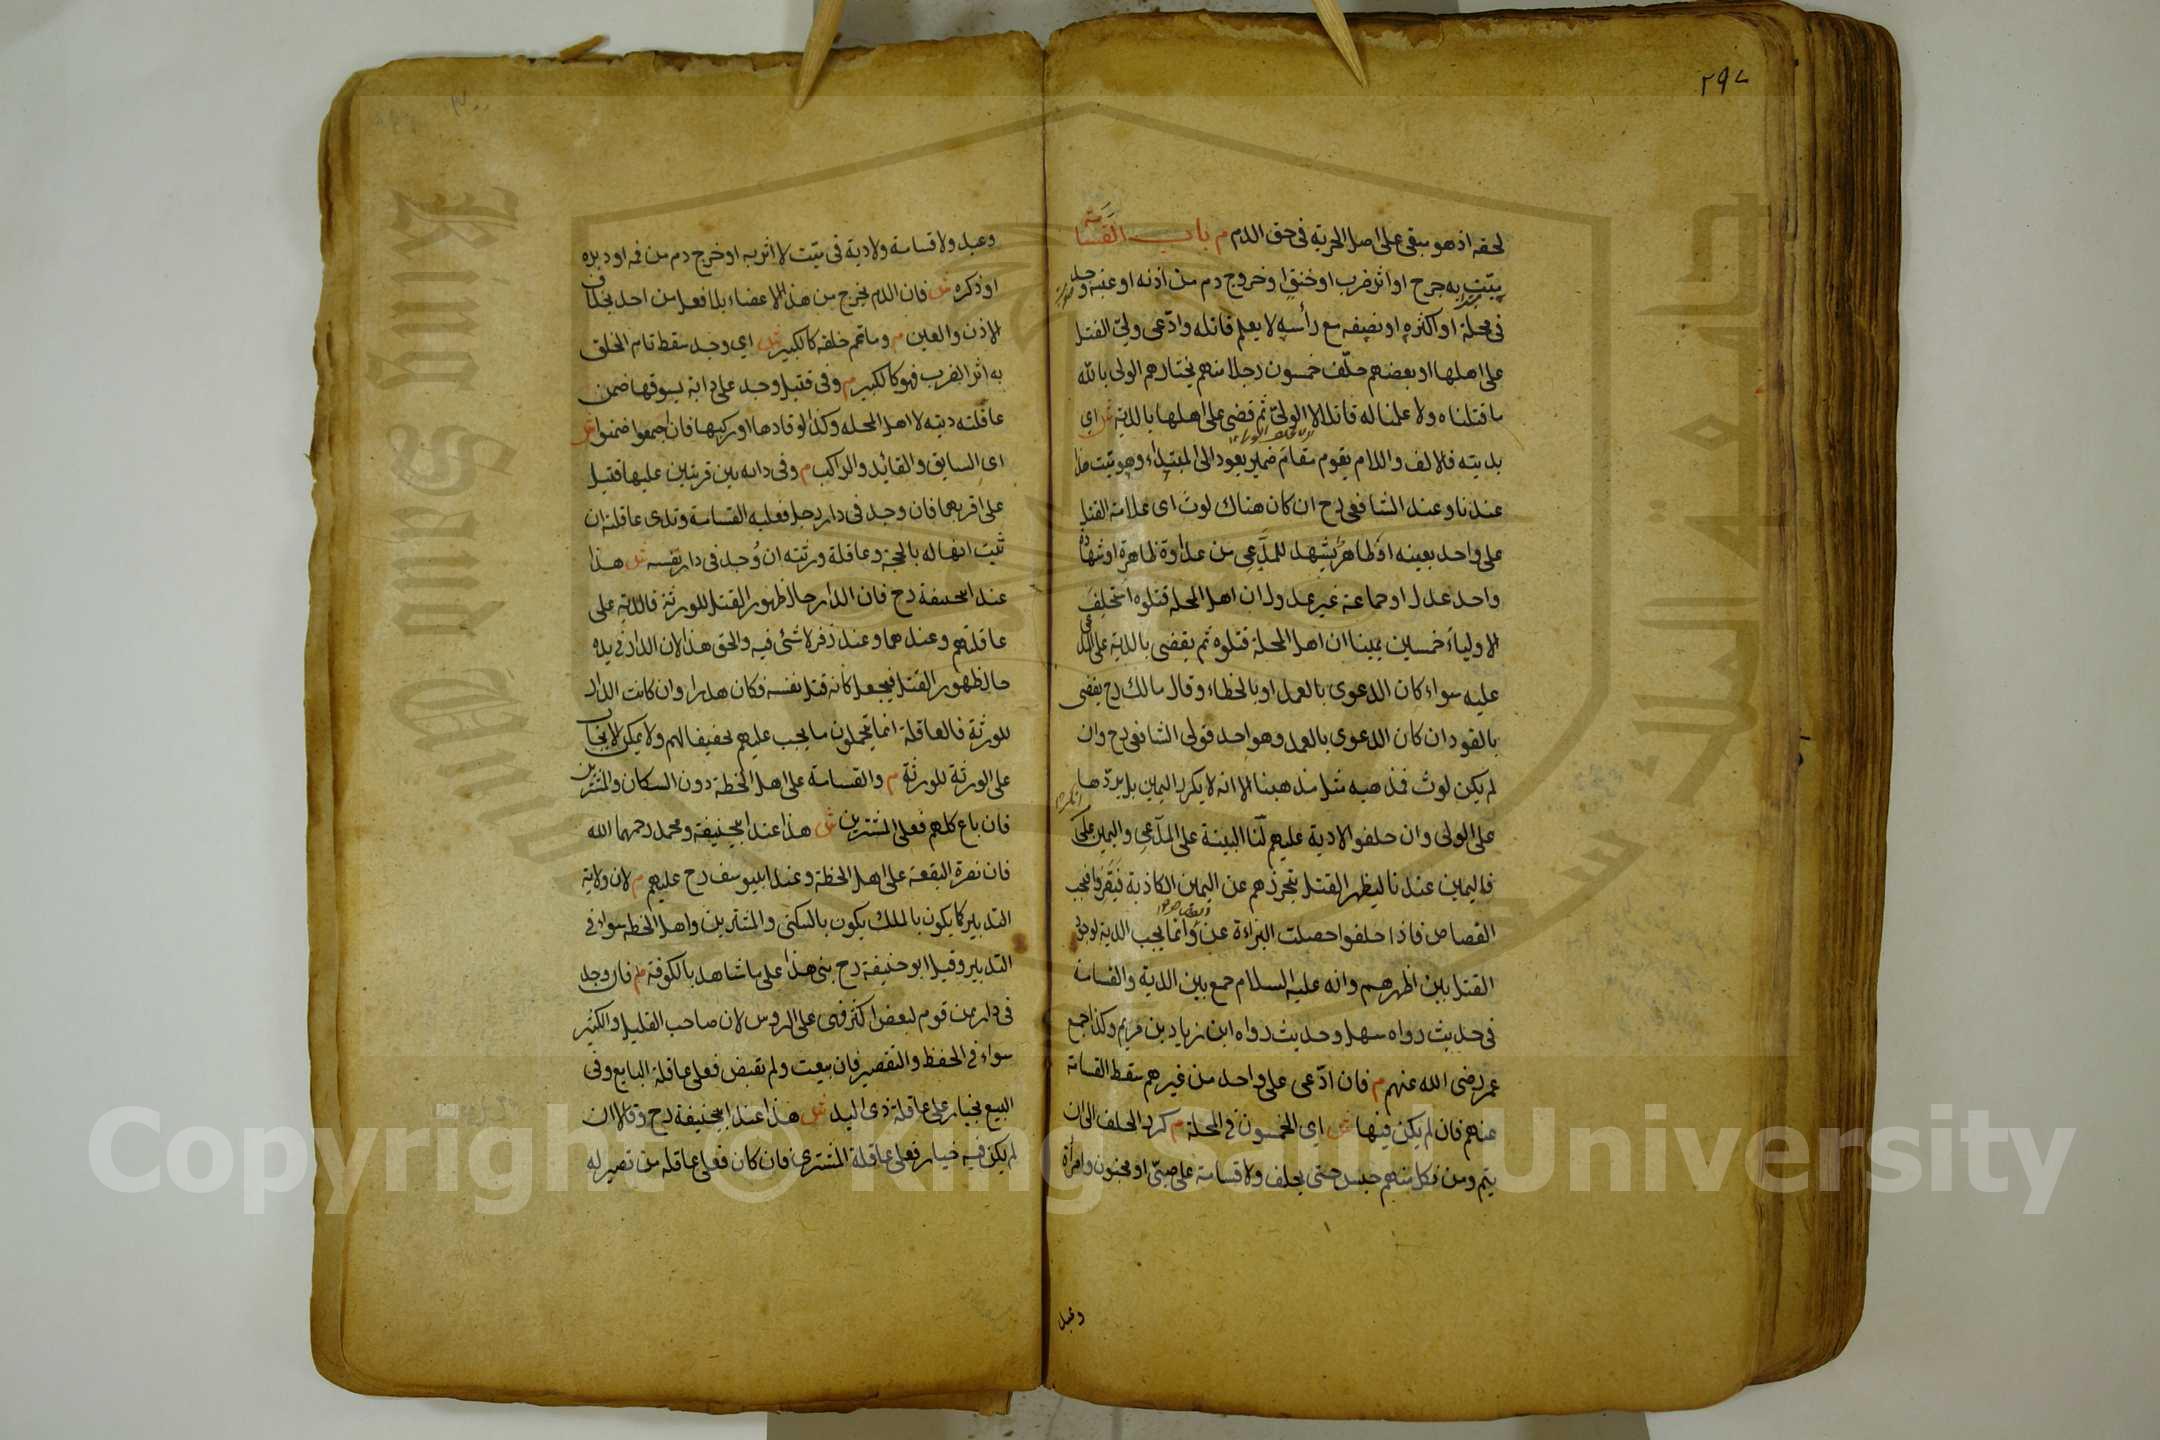 ٢٩٨
لحقه اذ هو مبقى على اصل الحرية فى حق الدم م باب القسامة
ميّت به جرح او اثر ضرب او خنق او خروج دم من اذنه او عينه وجد
فى محلة او اكثره او نصفه مع رأسه لا يعلم قاتله وادّعى ولىّ القتل
على اهلها او بعضهم حلّف خمسون رجلا منهم يختارهم الولى بالله
ما قتلناه ولا علمنا له قاتلا لا الولىّ ثم قضى على اهلها بالدية ش اى
بديته فالالف واللام يقوم مقام ضمير يعود الى المبتداء وهو ميّت هذا
عندنا وعند الشافعى رح ان كان هناك لوث اى علامة القتل
على واحد بعينه او ظاهر يشهد للمدّعى من عداوة ظاهرة او شهادة
واحد عدل او جماعة غير عدول ان اهل المحلة قتلوه استحلف
الاولياء خمسين يمينا ان اهل المحلة قتلوه ثم يقضى بالدية على المدعى
عليه سواء كان الدعوى بالعمد او بالخطاء وقال مالك رح يقضى
بالقود ان كان الدعوى بالعمد وهو احد قولى الشافعى رح وان
لم يكن لوث فمذهبه مثل مذهبنا الا انه لا يكرر اليمين بل يردّها
على الولى وان حلفوا لا دية عليهم لنا البينة على المدّعى واليمين على من انكر
فاليمين عندنا ليظهر القتل بتحرزهم عن اليمين الكاذبة فيقروا فيجب
القصاص فاذا حلفوا حصلت البراءة عن القصاص وانما يجب الدية لوجود
القتل بين اظهرهم وانه عليه السلام جمع بين الدية والقسامة
فى حديث رواه سهل وحديث رواه ابن زياد بن مريم وكذا جمع
عمر رضى الله عنهم م فان ادّعى على واحد من غيرهم سقط القسامة
عنهم فان لم يكن فيها ش اى الخمسون فى المحلة م كرر الحلف الى ان
يتم ومن نكل منهم حبس حتى يحلف ولا قسامة على صبىّ او مجنون وامرأة
وعبد
وعبد ولا قسامة ولا دية فى ميّت لا اثر به او خرج دم من فمه او دبره
او ذكره ش فان الدم يخرج من هذه الاعضاء بلا فعل من احد بخلاف
الاذن والعين م وما تم خلقه كالكبير ش اى وجد سقط تام الخلق
به اثر الضرب فهو كالكبير م وفى قتيل وجد على دابة يسوقها ضمن
عاقلته ديته لا اهل المحله وكذا لو قادها او ركبها فان اجمعوا ضمنوا ش
اى السايق والقائد والراكب م وفى دابه بين قريتين عليها قتيل
على اقربهما فان وجد فى دار رجل فعليه القسامة وتدى عاقلته ان
ثبت انها له بالحجة وعاقلة ورثته ان وُجد فى دار نفسه ش هذا
عند ابيحنيفة رح فان الدار حال ظهور القتل للورثة فالدية على
عاقلتهم وعندهما وعند زفر لا شئ فيه والحق هذا لان الدار فى يده
حال ظهور القتل فيجعل كانه قتل نفسه فكان هدرا وان كانت الدار
للورثة فالعاقلة انما يتحملون ما يجب عليهم تخفيفا لهم ولا يمكن الايجاب
على الورثة للورثة م والقسامة على اهل الخطة دون السكان والمشترين
فان باع كلهم فعلى المشترين ش هذا عند ابيحنيفة ومحمد رحمهما الله
فان نصرة البقعة على اهل الخطة وعند ابيوسف رح عليهم م لان ولاية
التدبير كما يكون بالملك يكون بالسكنى والمشترين واهل الخطه سواء فى
التدبير وقيل ابو حنيفة رح بنى هذا على ما شاهد بالكوفة م فان وجد
فى دار بين قوم لبعض اكثر فهى على الروس لان صاحب القليل والكثير
سواء فى الحفظ والتقصير فان بيعت ولم تقبض فعلى عاقلة البايع وفى
البيع بخيار على عاقلة ذى اليد ش هذا عند ابيحنيفة رح وقالا ان
لم يكن فيه خيار فعلى عاقلة المشترى فان كان فعلى عاقله من تصير له
Copyright © King Saud University